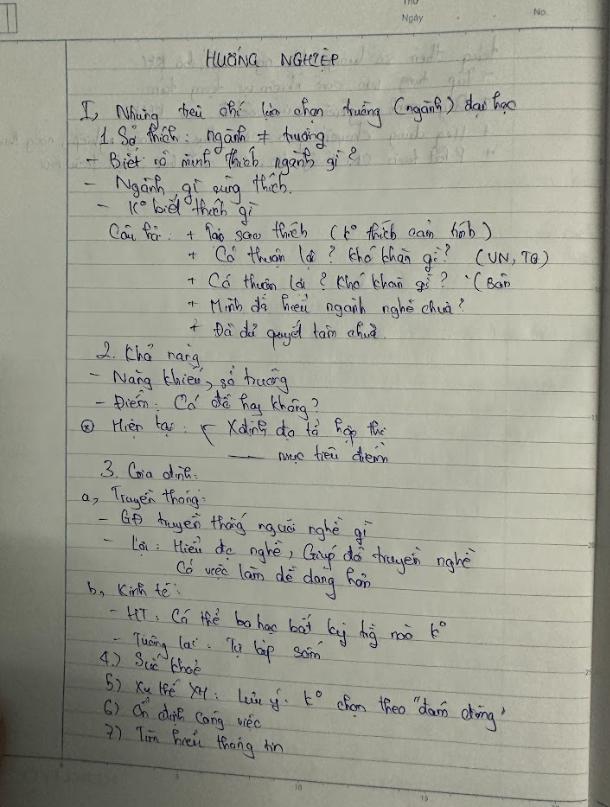 Thứ
Ngày
No.
HƯỚNG NGHIỆP
I, Những tiêu chí lựa chọn trường (ngành) đại học
1. Sở thích: ngành ≠ trường
- Biết rõ mình thích ngành gì?
- Ngành gì cũng thích.
- K° biết thích gì
Câu hỏi: + Tại sao thích (k° thích cảm tính)
+ Có thuận lợi? Khó khăn gì? (VN, TG)
+ Có thuận lợi? Khó khăn gì? (Bản
+ Mình đã hiểu ngành nghề chưa?
+ Đã đủ quyết tâm chưa.
2. Khả năng
- Năng khiếu, sở trường
- Điểm: Có đỗ hay không?
Hiện tại: Xđịnh đc tổ hợp thi
mục tiêu điểm
3. Gia đình:
a, Truyền thống:
- GĐ truyền thống người nghề gì
- Lợi: Hiểu đc nghề, Giúp đỡ truyền nghề
Có việc làm dễ dàng hơn
b, Kinh tế:
- HT: Có thể học bất kỳ trg nào k°
- Tương lai: Tự lập sớm
4.) Sức khoẻ
5) Xu thế XH: Lưu ý: k° chọn theo "đám đông"
6) Ổn định công việc
7) Tìm hiểu thông tin